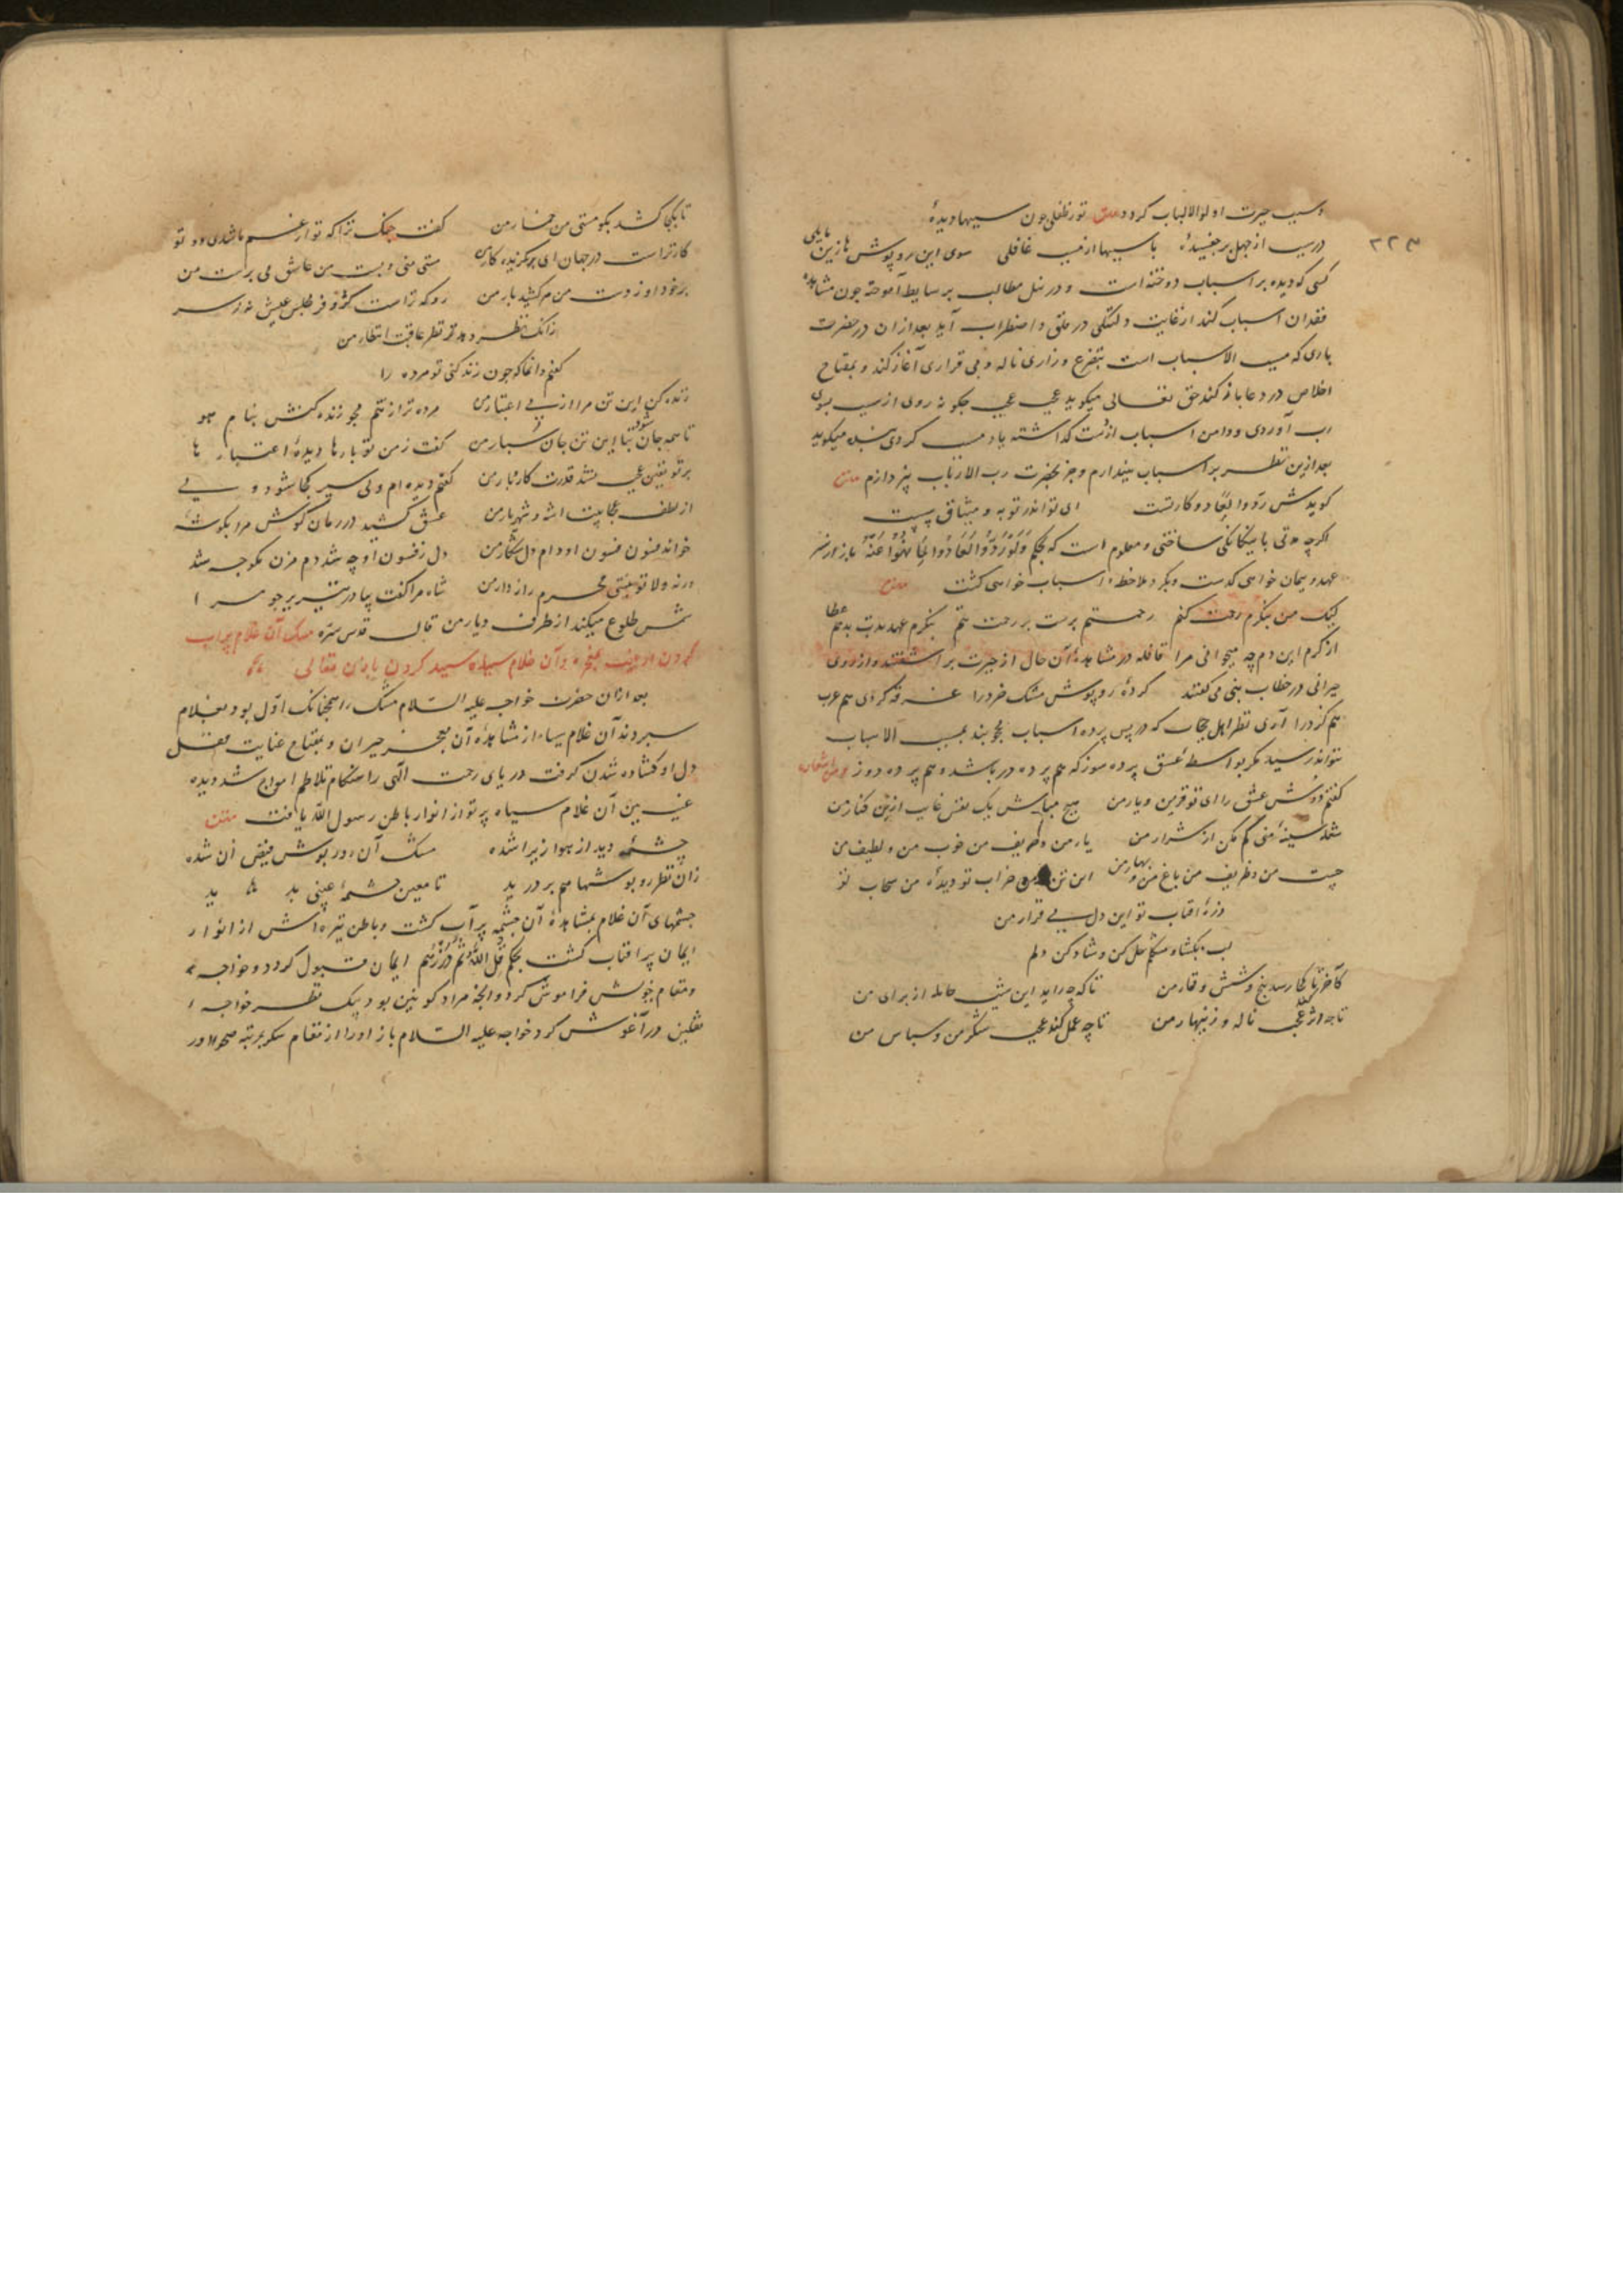 ۲۲۳
و سبب حیرت اولوالالباب کردد متن تو ز طفلی چون سببها دیدهٔ
در سبب از جهل بر چفسیدهٔ با سببها از مسبب غافلی سوی این روپوش ها زین مایلی
کسی که دیده بر اسباب دوخته است و در نیل مطالب بر سایط آموخته چون مشاهده
فقدان اسباب کند از غایت دلتنکی در قلق و اضطراب آید بعد از آن در حضرت
باری که مسبب الاسباب است بتضرع و زاری ناله و بی قراری آغاز کند و بمفتاح
اخلاص در دعا باز کند حق تعالی میکوید عجب عجب چکونه روی از سبب بسوی
رب آوردی و دامن اسباب از دست کذاشته یاد مسبب کردی بنده میکوید
بعد ازین نظر بر اسباب نیندازم و جز بحضرت رب الارباب نپردازم متن
کویدش ردوا لعادوا کار تست ای تو اندر توبه و میثاق سست
اکرچه مدتی با بیکانکی ساختی و معلوم است که بحکم وَلَوْ رُدُّوا لَعَادُوا لِمَا نُهُوا عَنْهُ باز از سر
عهد و پیمان خواهی کذشت و بکرد ملاحظهٔ اسباب خواهی کشت متن
لیک من ننکرم رحمت کنم رحمتم پرست بر رحمت تنم ننکرم عهد بدت بدهم عطا
از کرم این دم چو میخوانی مرا قافله در مشاهدهٔ آن حال از حیرت بر آشفتند و از روی
حیرانی در خطاب نبی می کفتند کردهٔ روپوش مشک خرد را غرقه کردی هم عرب
هم کرد را آری نظر اهل حجاب که در پس پرده اسباب محجوبند بمسبب الاسباب
نتواند رسید مکر بواسطهٔ عشق پرده سوز که هم پرده در باشد و هم پرده دوز
کفتم دوش عشق را ای تو قرین و یار من هیچ مباش یک نفس غایب ازین کنار من
شعله سینهٔ منی کم مکن از شرار من یار من و حریف من خوب من و لطیف من
چست من و ظریف من باغ من و بهار من این تن من خراب تو دیدهٔ من سحاب تو
ذرهٔ آفتاب تو این دل بی قرار من
لب بکشا و مشکلم حل کن و شاد کن دلم
کآخر تا کجا رسد پنج و شش و قمار من تا که چه زاید این شب حامله از برای من
تا چه اثر کند عجب ناله و زینهار من تا چه عمل کند عجب شکر من و سپاس من
تا بکجا کشد بکو مستی من خمار من کفت خنک ترا که تو از غم ما شدی دو تو
کار تراست در جهان ای بکزیده کار من مست منی و پست من عاشق می پرست من
برخورد او ز دست من هر کشید بار من رو که تراست کرّ و فر مجلس عیش نه ز سر
زانک نظر دهد نظر عاقبت انتظار من
کفتم وانما که چون زنده کنی تو مرده را
زنده کن این تن مرا از پی اعتبار من مرده تر از تنم مجو زنده کنش بنام هو
تا همه جان شود تنم این تن جان سپار من کفت ز من تو بارها دیدهٔ اعتبارها
بر تو یقین عجب نشد قدرت کار و بار من کفتم دیده ام ولی سیر کجا شود دلی
از لطف عجایبت ای شه و شهریار من عشق کشید در زمان کوش مرا بکوشهٔ
خواند فسون فسون او دام دل شکار من دل ز فسون او چه شد دم مزن مکو چه شد
ورنه ولا تو نیستی محرم راز دار من شاه مرا کفت بیا در تبریز جو مرا
شمس طلوع میکند از طرف دیار من قال قدس سرّه مشک آن غلام پر آب
کردن از غیب بمعجزه و آن غلام سیاه سپید کردن باذن تعالی
بعد از آن حضرت خواجه علیه السّلام مشک را همچنانک اوّل بود بغلام
سپردند آن غلام سیاه از مشاهدهٔ آن معجز حیران و بمفتاح عنایت مقفل
دل او کشاده شدن کرفت دریای رحمت الهی را هنکام تلاطم امواج شد دیده
غیب بین آن غلام سیاه پرتو از انوار باطن رسول اللّه یافت متن
چشمهٔ دید از هوا ریزان شده مشک آن روپوش فیض آن شده
زان نظر روپوشها هم بر درید تا معین چشمهٔ غیبی بدید
چشمهای آن غلام بمشاهدهٔ آن چشمه پر آب کشت و باطن تیره اش از انوار
ایمان پر آفتاب کشت بحکم قُلِ اللّٰهُ ثُمَّ ذَرْهُمْ ایمان قبول کرد و خواجه
و مقام خویش فراموش کرد و آنچه مراد کونین بود بیک نظر خواجه
ثقلین در آغوش کرد خواجه علیه السّلام باز او را از مقام سکر بمرتبه صحو آورد